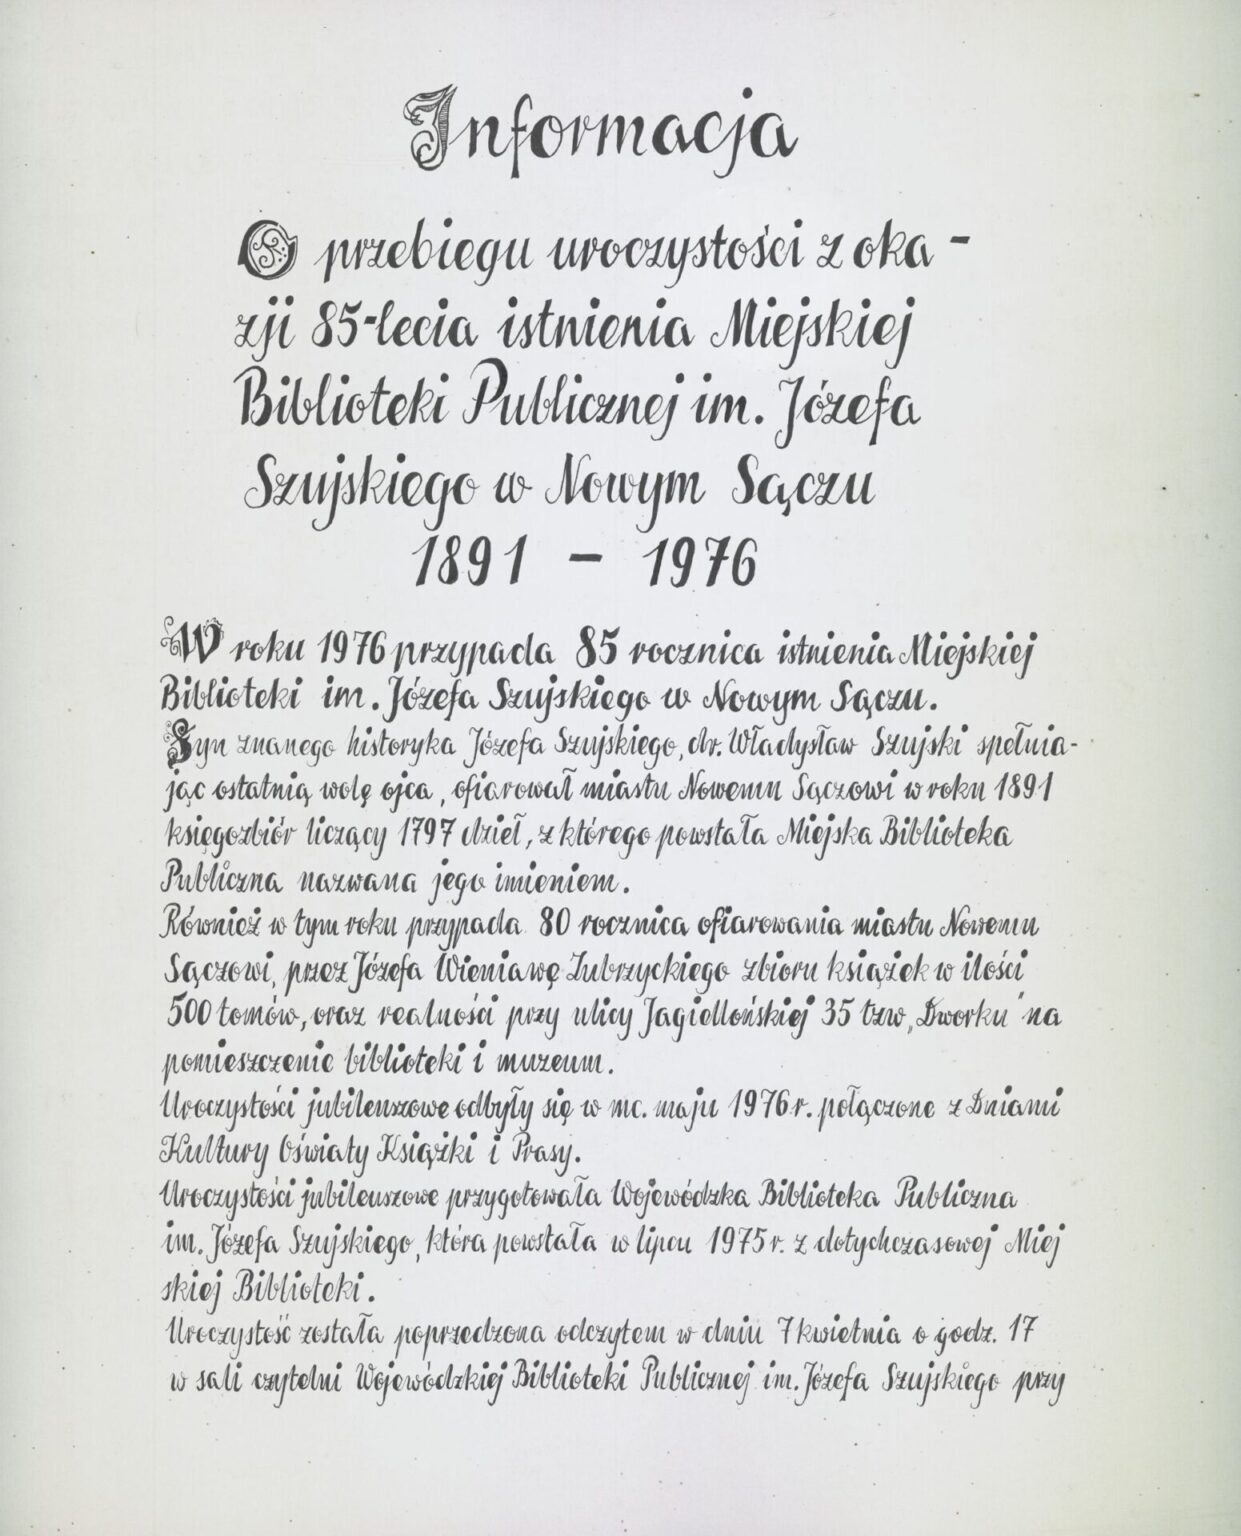 Informacja
O przebiegu uroczystości z oka-
zji 85-lecia istnienia Miejskiej
Biblioteki Publicznej im. Józefa
Szujskiego w Nowym Sączu
1891 - 1976
W roku 1976 przypada 85 rocznica istnienia Miejskiej
Biblioteki im. Józefa Szujskiego w Nowym Sączu.
Syn znanego historyka Józefa Szujskiego, dr. Władysław Szujski spełnia-
jąc ostatnią wolę ojca, ofiarował miastu Nowemu Sączowi w roku 1891
księgozbiór liczący 1797 dzieł, z którego powstała Miejska Biblioteka
Publiczna nazwana jego imieniem.
Również w tym roku przypada 80 rocznica ofiarowania miastu Nowemu
Sączowi, przez Józefa Wieniawę Zubrzyckiego zbioru książek w ilości
500 tomów, oraz realności przy ulicy Jagiellońskiej 35 tzw „Dworku" na
pomieszczenie biblioteki i muzeum.
Uroczystości jubileuszowe odbyły się w mc. maju 1976 r. połączone z Dniami
Kultury Oświaty Książki i Prasy.
Uroczystości jubileuszowe przygotowała Wojewódzka Biblioteka Publiczna
im. Józefa Szujskiego, która powstała w lipcu 1975 r. z dotychczasowej Miej
skiej Biblioteki.
Uroczystość została poprzedzona odczytem w dniu 7 kwietnia o godz. 17
w sali czytelni Wojewódzkiej Biblioteki Publicznej im. Józefa Szujskiego przy